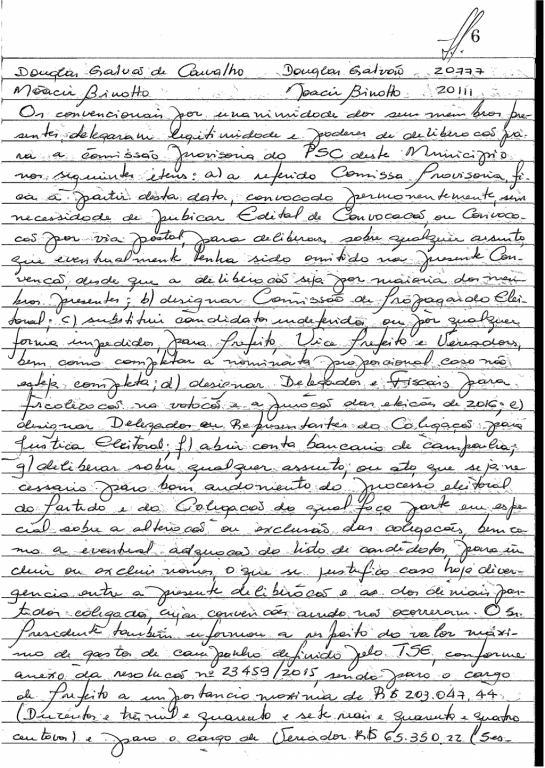 fl. 6
Douglas Galvão de Carvalho Douglas Galvão 20777
Moacir Binotto Moacir Binotto 20111
Os convencionais por unanimidade dos seus membros pre-
sentes, delegaram legitimidade e poderes de deliberacoẽs pa-
ra a comissão provisoria do PSC deste Municipio
nos seguintes itens: a) a referida Comissa Provisoria, fi-
ca a partir desta data, convocada permonentemente, sem
necessidade de pubicar Edital de Convocacaõ, ou Convoca-
caõ por via postal, para deliberar, sobre qualquer assunto,
que eventualmente tenha sido omitido na presente Con-
vencaõ, desde que a deliberacaõ seja por maioria dos mem-
bros presentes; b) designar Comissão de Propaganda Elei-
toral; c) substituir candidatos indeferidos, ou por qualquer
forma impedidos, para Prefeito, Vice Prefeito e Vereadores,
bem como completar a nominata proporcional caso naõ
esteja completa; d) designar Delegados e Fiscais para
fiscalizacaõ na votacaõ e apuracaõ das eleicões de 2016; e)
designar Delegados ou Representantes da Coligacaõ para
Justica Eleitoral; f) abrir conta bancaria de campanha;
g) deliberar sobre qualquer assunto, ou ato que seja ne-
cessario para bom andamento do processo eleitoral
do Partido e da Coligacaõ da qual faca parte em espe-
cial sobre a alteracaõ ou exclusaõ das coligacoẽs, bem co-
mo a eventual adequacaõ da lista de candidatos, para in-
cluir ou excluir nomes, o que se justifica caso haja diver-
gencia entre a presente deliberacaõ e as dos demais par-
tidos coligados, cujas convencoẽs ainda naõ ocorreram. O Sr.
Presidente também informou a respeito do valor maxi-
mo de gastos de campanha definido pelo TSE, conforme
anexo da resolucaõ nº 23459/2015 sendo para o cargo
de Prefeito a importancia maxima de R$ 203.047,44
(Duzentos e três mil e quarenta e sete reais e quarenta e quatro
centavos) e para o cargo de Vereador R$ 65.350,22 (Ses-